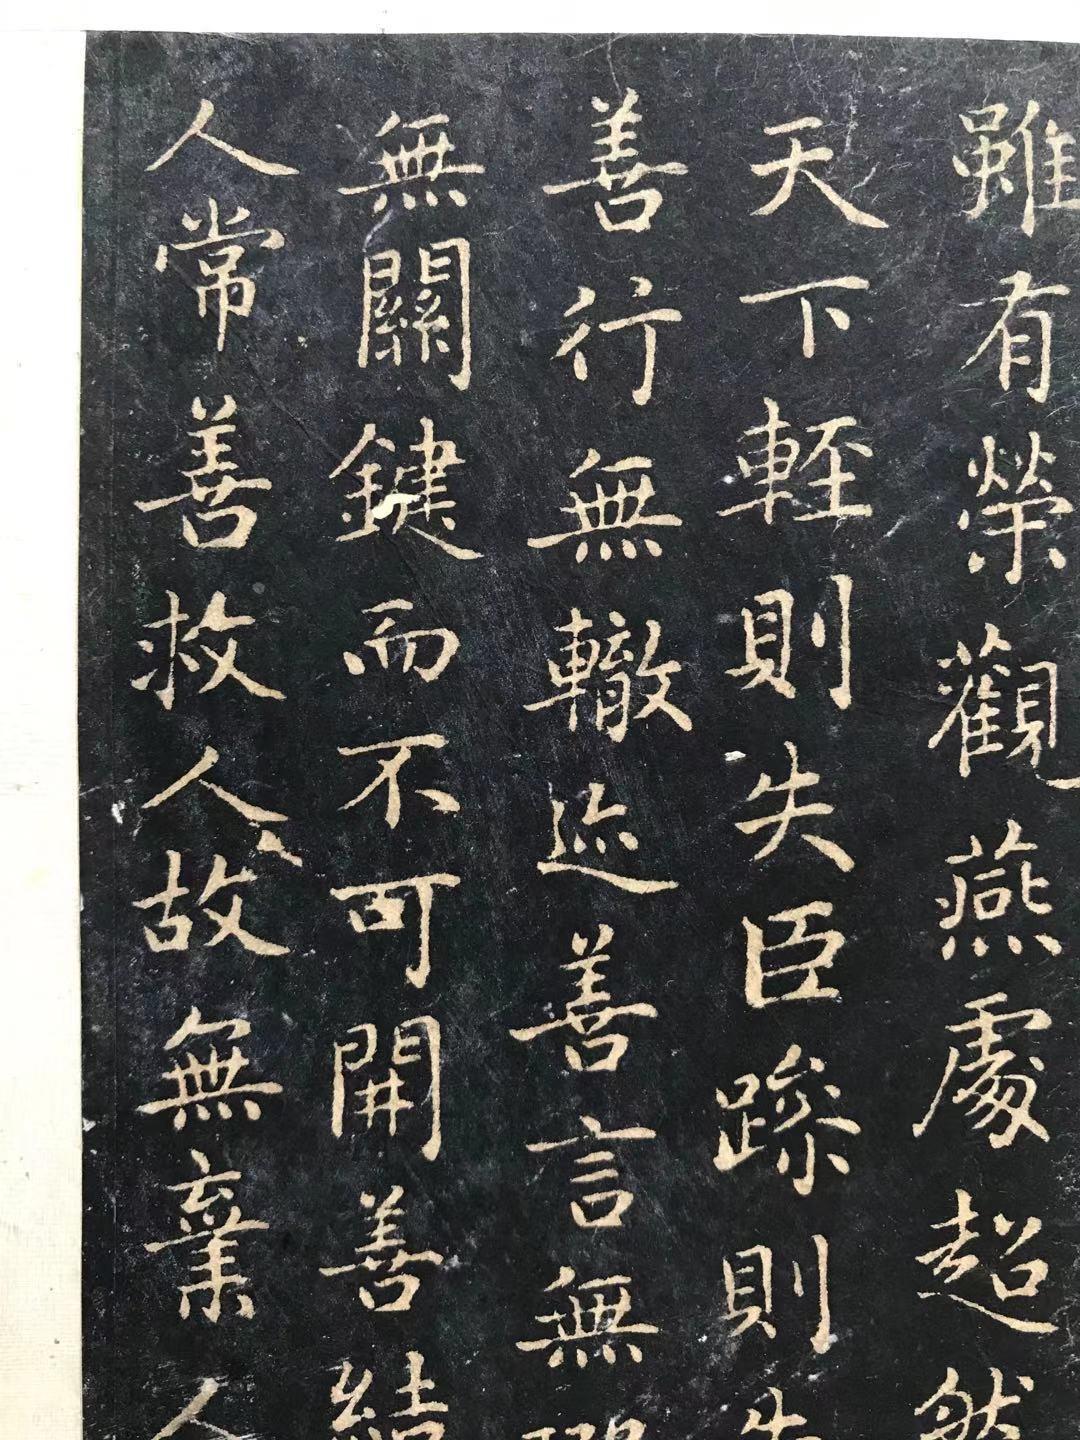 雖有榮觀燕處超然
天下輕則失臣踈則失
善行無轍迹善言無
無關鍵而不可開善結
人常善救人故無棄人